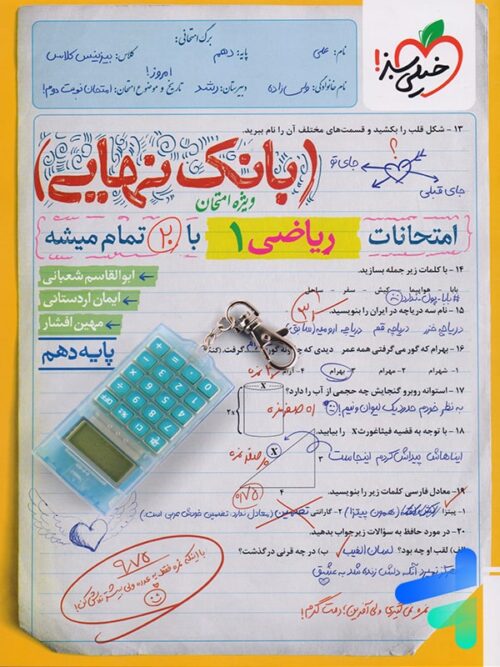 خیلی سبز!
برگ امتحانی:
نام: علی
پایه: دهم
کلاس: بیزینس کلاس
نام خانوادگی:
دبیرستان: رشد
تاریخ و موضوع امتحان: امروز! امتحان نوبت دوم!
۱۳ - شکل قلب را بکشید و قسمت‌های مختلف آن را نام ببرید.
؟
جای تو
جای قبلی
(بانک نهایی)
ویژه امتحان
امتحانات ریاضی ۱ با ۲۰ تمام میشه
ابوالقاسم شعبانی
ایمان اردستانی
مهین افشار
پایه دهم
۱۴ - با کلمات زیر جمله بسازید.
بابا - هواپیما - کیش - سفر - ساحل
#بابا_پول_ندارد
۱۵ - نام سه دریاچه در ایران را بنویسید.
دریاچه خزر دریاچه قم دریاچه ارومیه
۱۶ - بهرام که گور می‌گرفتی همه عمر دیدی که
گور
گرفت.
۱- شهرام
۲- مهرام
۳- بهرام
۴- آرام
۱۷ - استوانه روبرو گنجایش چه حجمی از آب را دارد؟
به نظر خودم حدود یک لیوان و نیم
X
۲x
۱۸ - با توجه به قضیه فیثاغورث X را بیابید.
ایناهاش پیداش کردم اینجاست
X
۳
۴
۱۹ - معادل فارسی کلمات زیر را بنویسید.
۱- پیتزا
(همون پیتزا)
۲- گارانتی
(معادل ندارد. تضمین خودش عربی است.)
۲۰ - در مورد حافظ به سؤالات زیر جواب بدهید.
الف) لقب او چه بود؟ لسان الغیب ب) در چه قرنی درگذشت؟
هرگز نمیرد آنکه دلش زنده شد به عشق
۹/۷۵